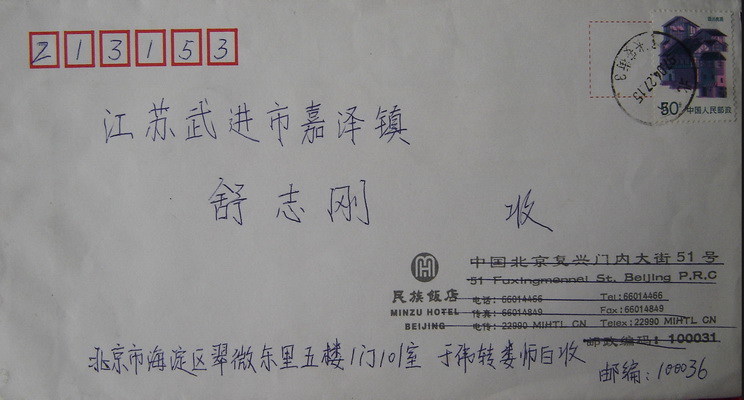 213153
50分 中国人民邮政
江苏武进市嘉泽镇
舒志刚 收
民族飯店
MINZU HOTEL
BEIJING
中国北京复兴门内大街51号
51 Fuxingmennei St. Beijing P.R.C
电话: 66014466 Tel: 66014466
传真: 66014849 Fax: 66014849
电传: 22990 MIHTL CN Telex: 22990 MIHTL CN
邮政编码: 100031
北京市海淀区翠微东里五楼1门101室 于伟转娄师白收
邮编: 100036